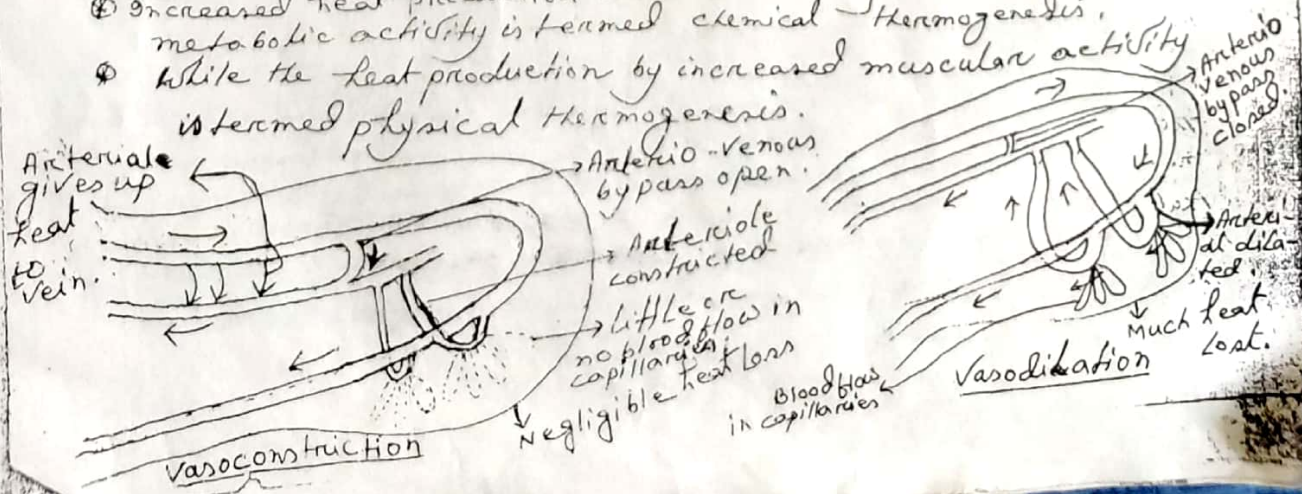 Increased heat
metabolic activity is termed chemical - thermogenesis.
While the heat production by increased muscular activity
is termed physical thermogenesis.
Arteriole
gives up
heat
to
vein.
Arterio-venous
bypass open.
Arteriole
constricted
Little or
no blood flow in
capillaries.
Negligible heat loss
Vasoconstriction
Arterio
venous
bypass
closed.
Arteri-
al dila-
ted.
Much heat
Lost.
Blood flow
in capillaries
Vasodilation